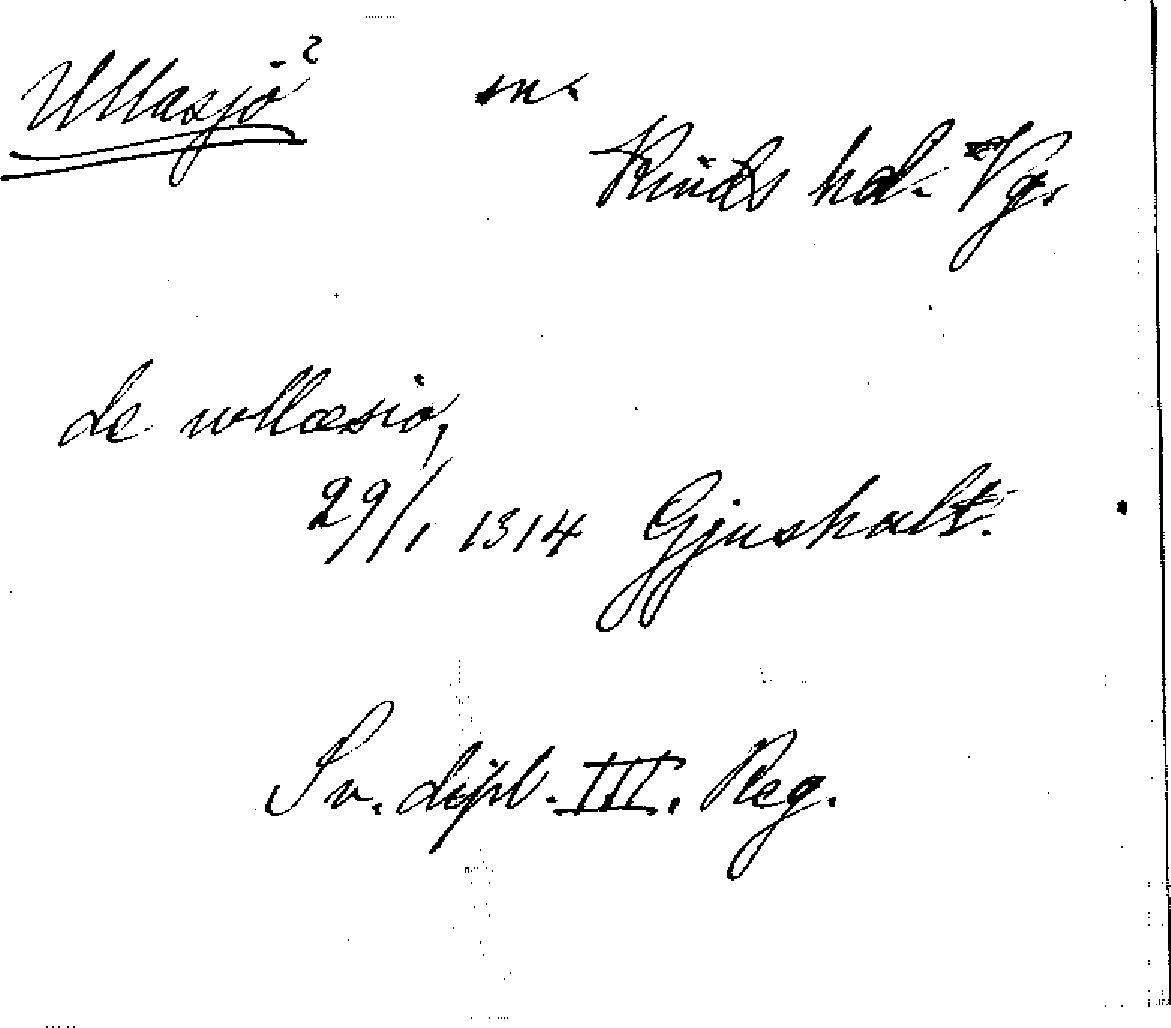 Ullasjö ? sn.
Kinds hd. Vg.
de vllæsio,
29/1 1314 Gjushult.
Sv. dipl. III. Reg.